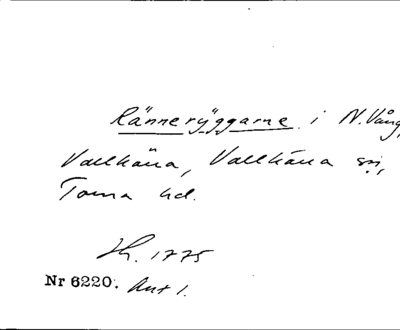 Ränneryggarne i N. Vång,
Vallkärra, Vallkärra sn,
Torna hd.
Lh. 1775
Nr 6220. Akt 1.